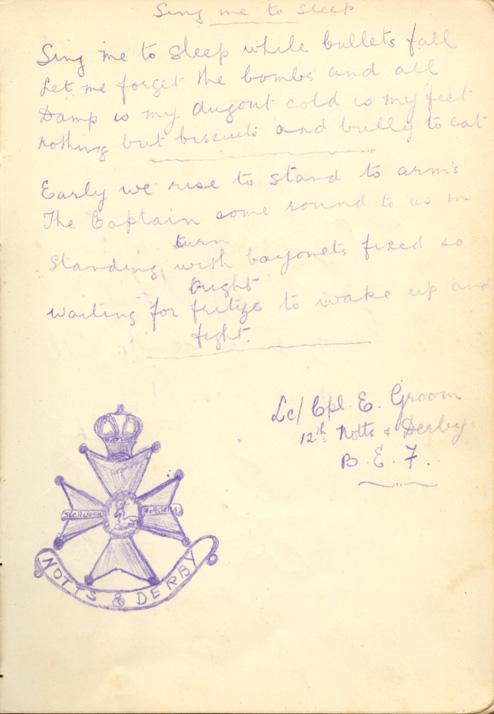 Sing me to sleep
Sing me to sleep while bullets fall
Let me forget the bombs and all
Damp is my dugout cold is my feet
nothing but biscuits and bully to eat
Early we rise to stand to arm's
The Captain come round to us in
turn
Standing with bayonets fixed so
bright
waiting for fritzs to wake up and
fight.
Lc/Cpl. E. Groom
12th Notts & Derby
B. E. F.
SHERWOOD
NOTTS & DERBY